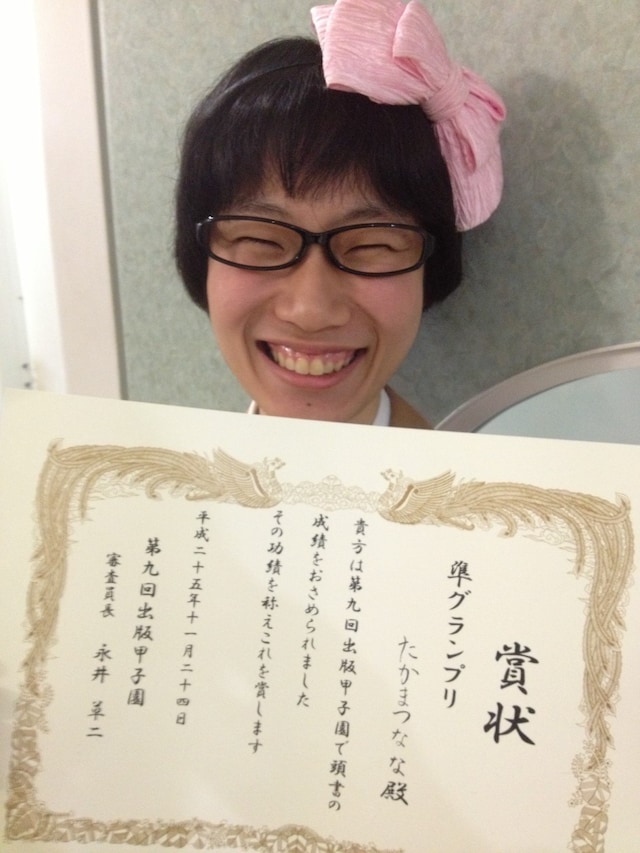 賞状
準グランプリ
たかまつなな殿
貴方は第九回出版甲子園で頭書の
成績をおさめられました
その功績を称えこれを賞します
平成二十五年十一月二十四日
第九回出版甲子園
審査員長 永井 草二